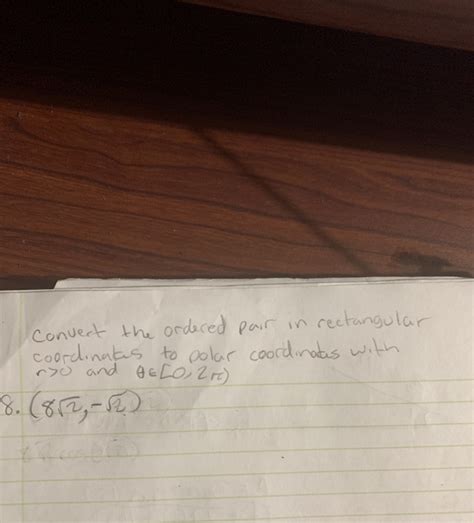 Convert the ordered pair in rectangular
coordinates to polar coordinates with
r>0 and θ∈[0, 2π)
8. (8√2, -√2)